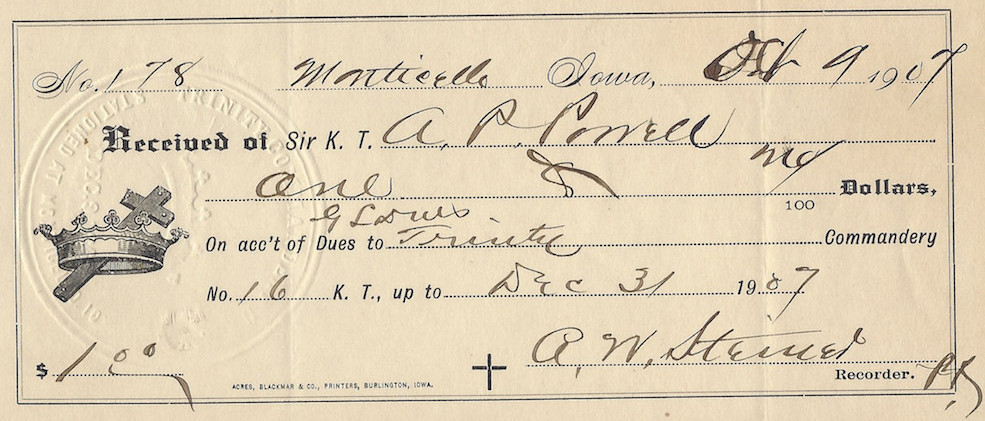 No. 178 Monticello Iowa, Oct 9 1907
Received of Sir K. T. A. P. Powell
One & no/100 Dollars,
On acc't of Dues to Trinity Commandery
No. 16 K. T., up to Dec 31 1907
A. W. Steiner
$ 1 00 Recorder.
ACRES, BLACKMAR & CO., PRINTERS, BURLINGTON, IOWA.